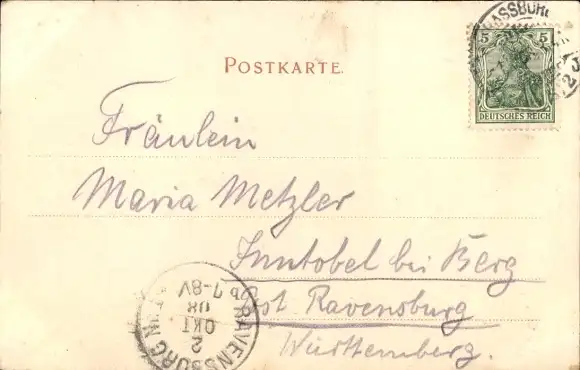 POSTKARTE.
5 5
DEUTSCHES REICH
Fräulein
Maria Metzler
Inntobel bei Berg
Post Ravensburg
Württemberg.
RAVENSBURG
2
OKT
08
7-8V